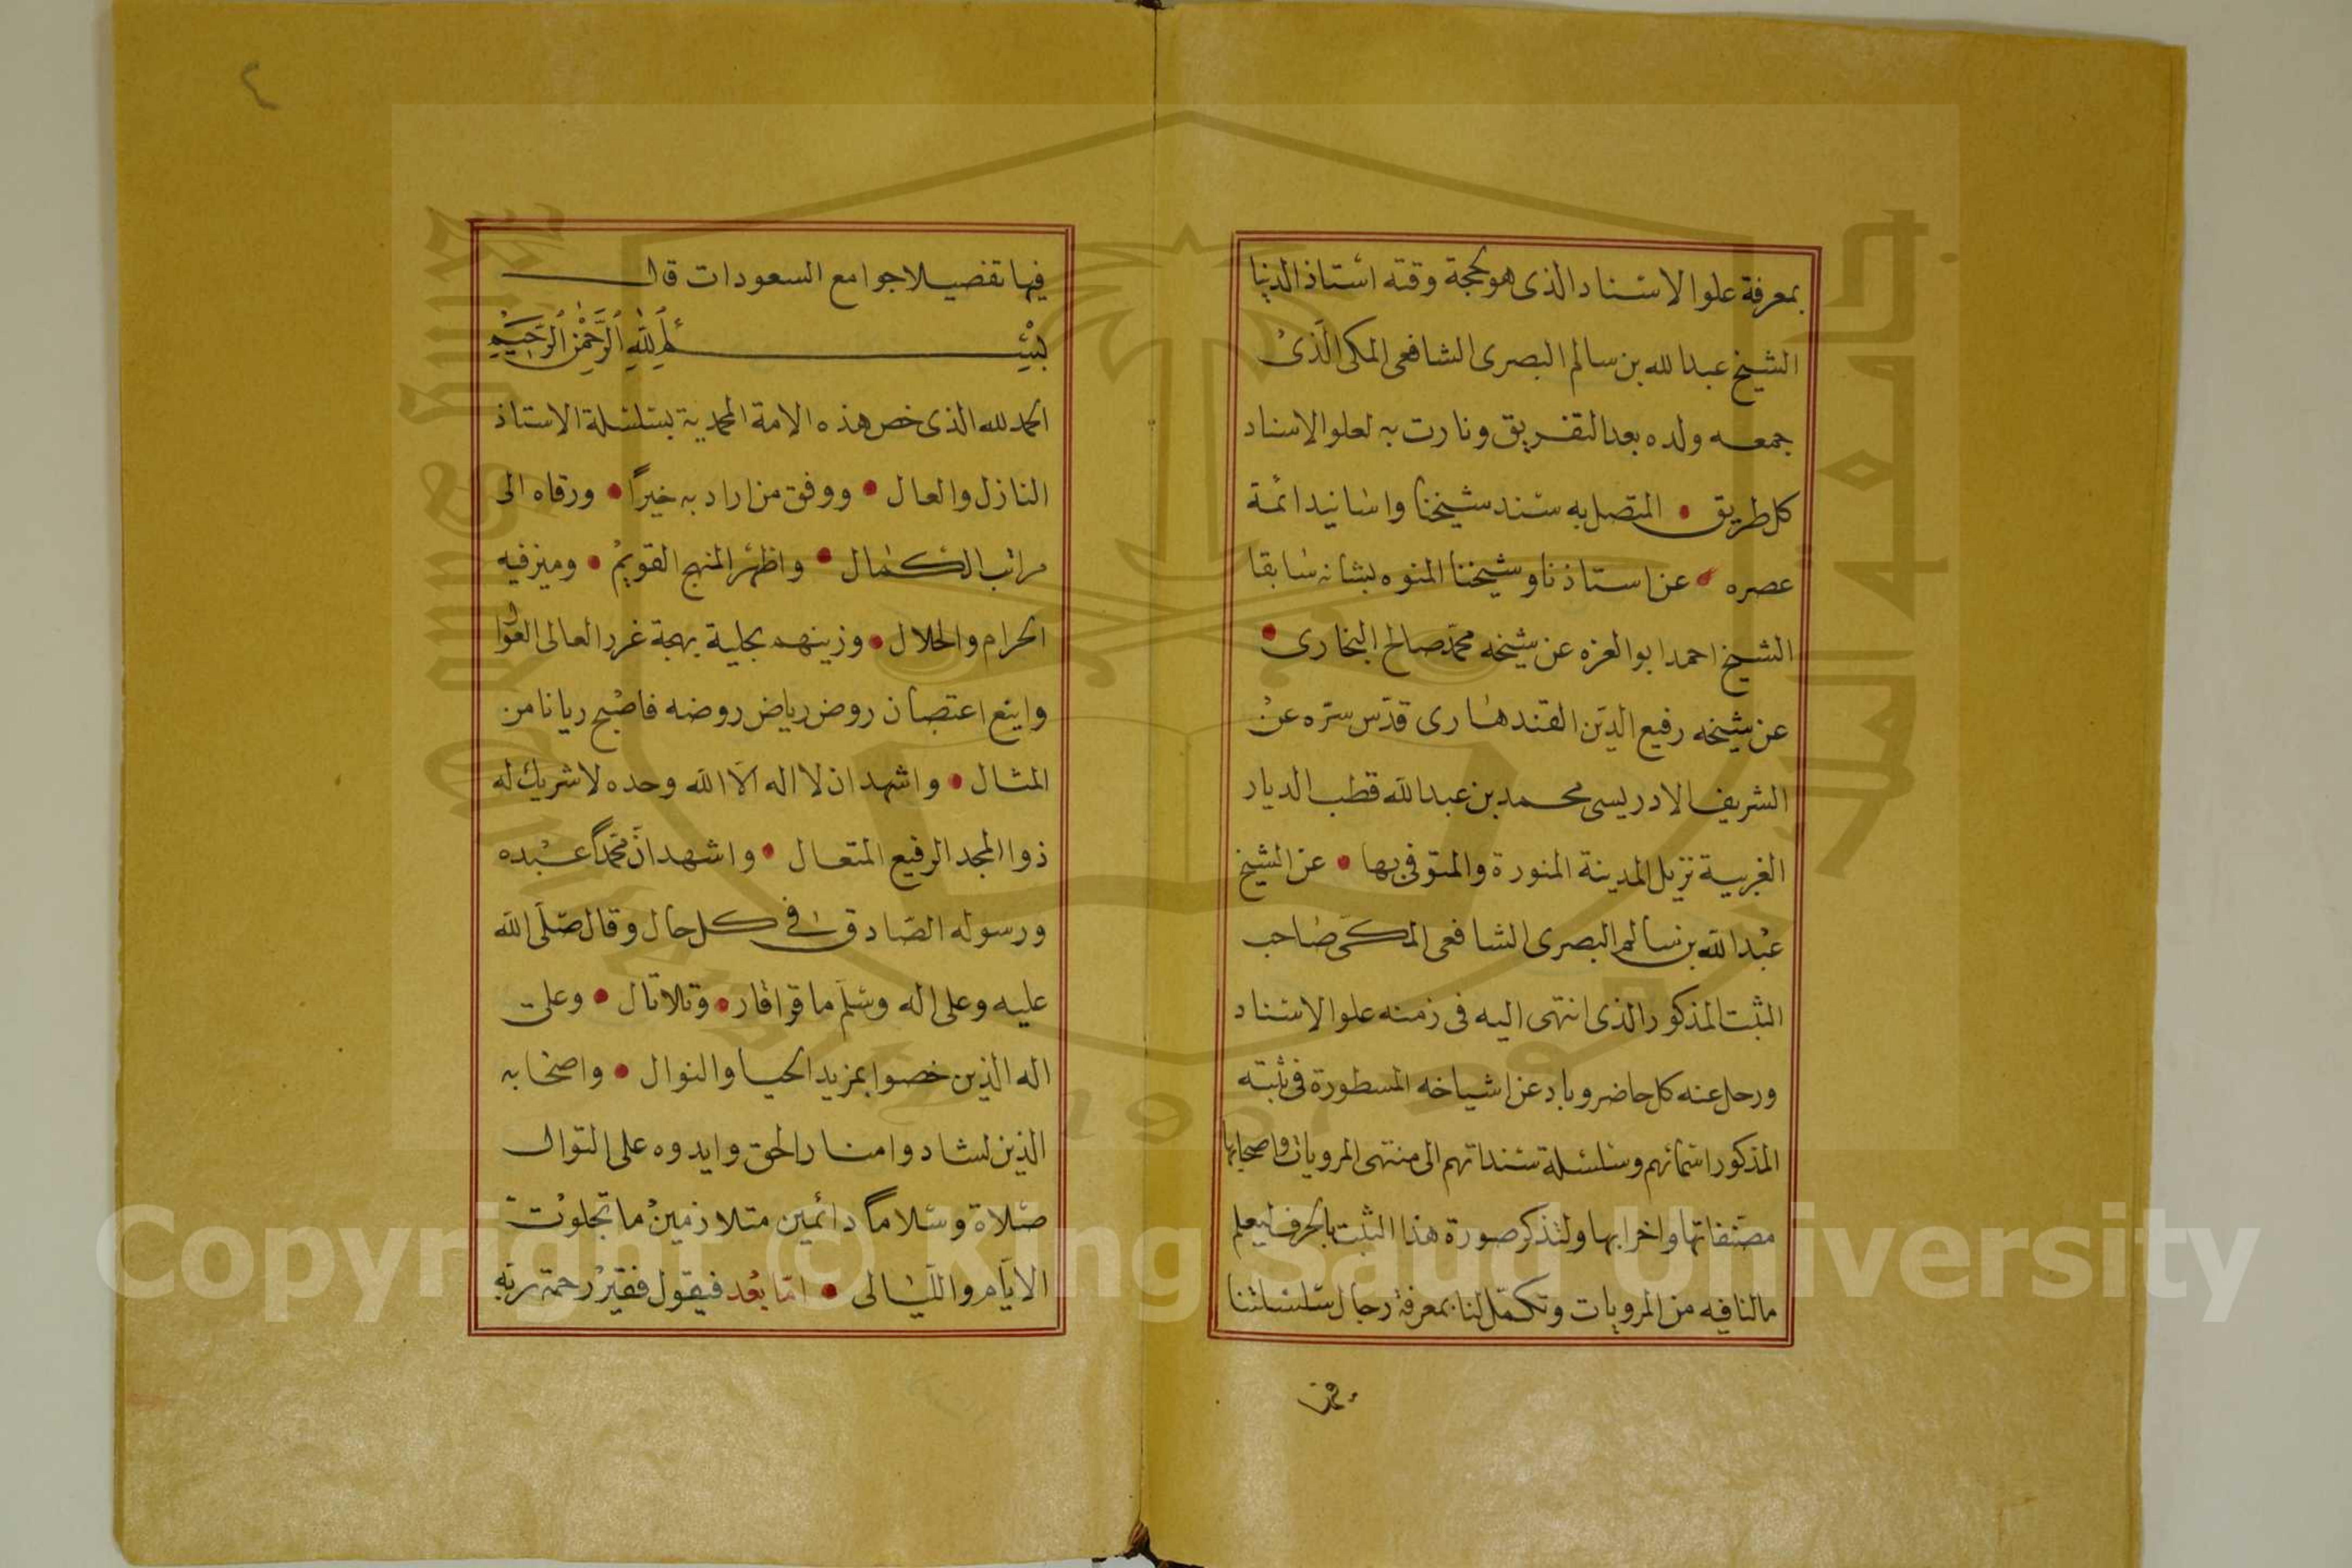 بمعرفة علوا الاسناد الذى هو كحجة وقته استاذ الدنيا
الشيخ عبدالله بن سالم البصرى الشافعى المكى الذى
جمعه ولده بعد التفريق ونارت به لعلو الاسناد
كل طريق • المتصل به سند شيخنا واسانيد ائمة
عصره • عن استاذنا وشيخنا المنوه بشانه سابقا
الشيخ احمد ابو العزه عن شيخه محمد صالح البخارى •
عن شيخه رفيع الدين القندهارى قدس سره عن
الشريف الادريسى محمد بن عبدالله قطب الديار
الغربية نزيل المدينة المنورة والمتوفى بها • عن الشيخ
عبدالله بن سالم البصرى الشافعى المكى صاحب
الثبت المذكور الذى انتهى اليه فى زمنه علوا الاسناد
ورحل عنه كل حاضر وباد عن اشياخه المسطورة فى ثبته
المذكور اسمائهم وسلسلة سنداتهم الى منتهى المرويات واصحابها
مصنفاتها واخرابها ولنذكر صورة هذا الثبت بالحرف ليعلم
مالنا فيه من المرويات وتكمل لنا بمعرفة رجال سلسلتنا
فيها تفضيلا جوامع السعودات قال
بسم الله الرحمن الرحيم
الحمد لله الذى خص هذه الامة المحمدية بسلسلة الاستاذ
النازل والعال • ووفق من اراد به خيرا • ورقاه الى
مراتب الكمال • واظهر المنهج القويم • وميز فيه
الحرام والحلال • وزينهم بحلية بهجة غرر العالى العوال
واينع اعتصان روض رياض روضه فاصبح ريانا من
المثال • واشهد ان لا اله الا الله وحده لا شريك له
ذوا المجد الرفيع المتعال • واشهد ان محمدا عبده
ورسوله الصادق فى كل حال وقال صلى الله
عليه وعلى اله وسلم ما قرا قار • وتلا تال • وعلى
اله الذين خصوا بمزيد الحيا والنوال • واصحابه
الذين لشادوا منار الحق وايدوه على التوال
صلاة وسلاما دائمين متلازمين ما تجلوت
الايام والليالى • اما بعد فيقول فقير رحمة ربه
٤
Copyright © King Saud University
1957